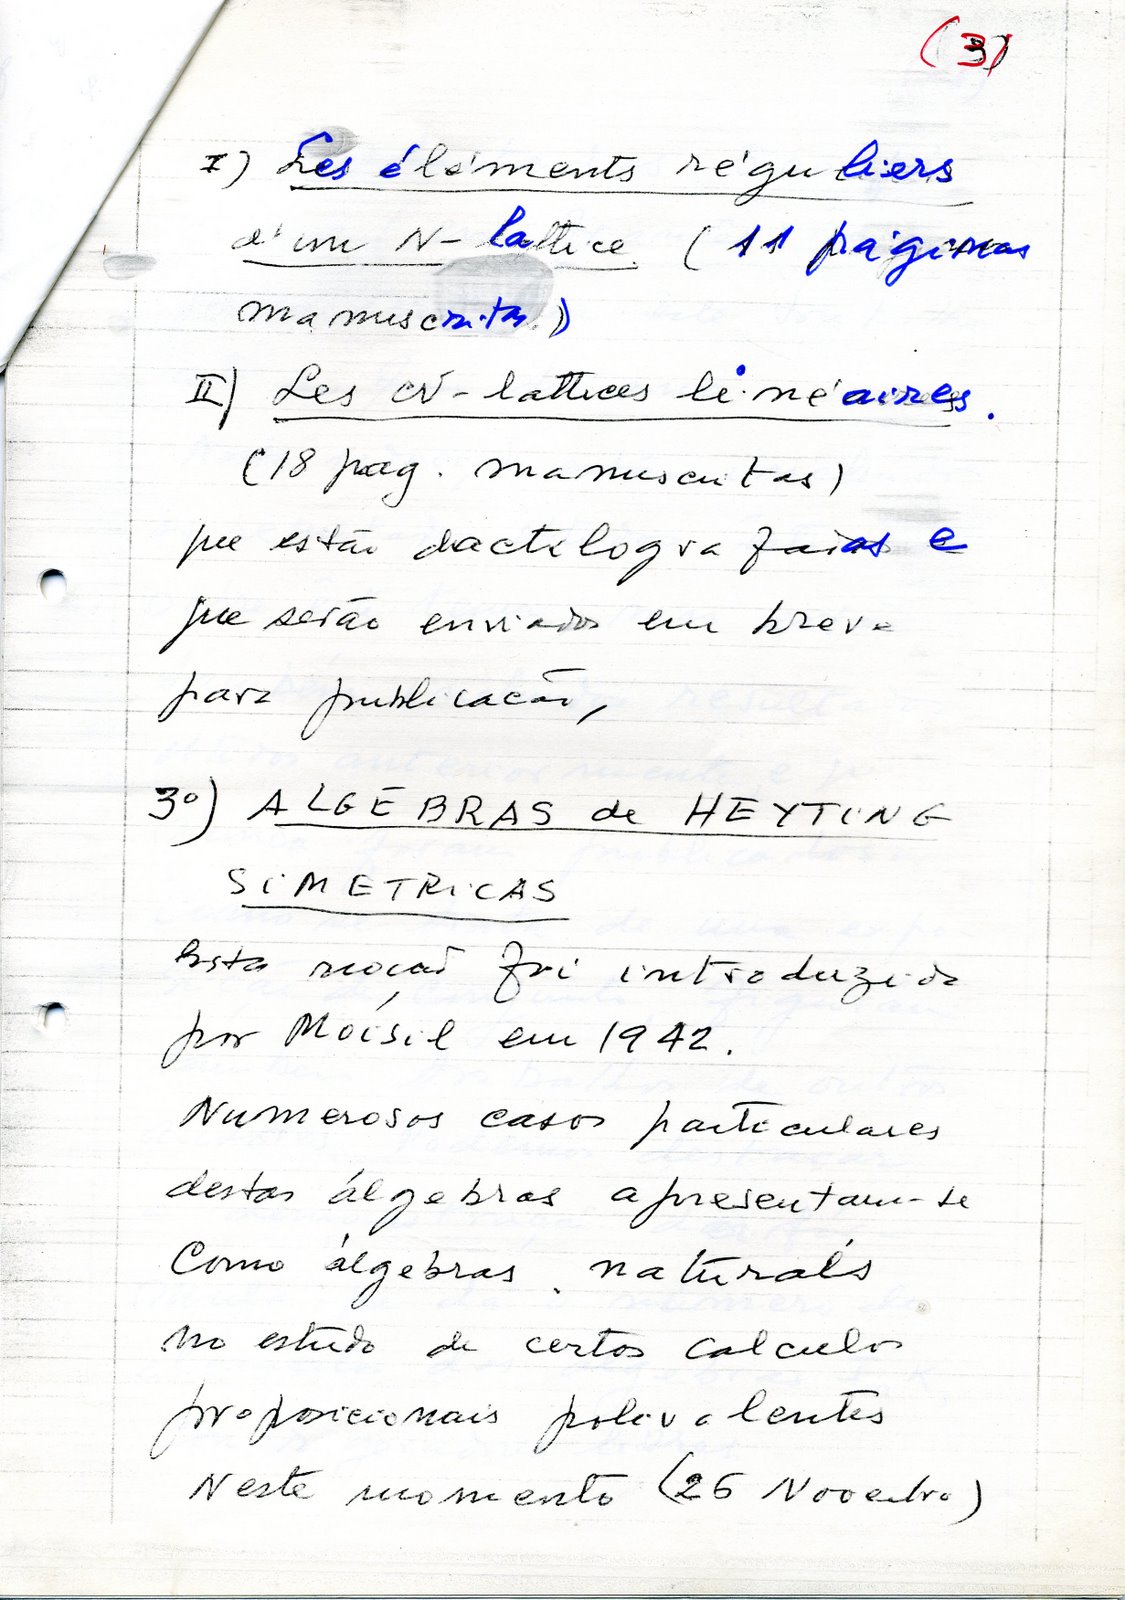 (3)
I) Les éléments réguliers
d'un N-lattice. (11 páginas
manuscritas)
II) Les N-lattices linéaires.
(18 pag. manuscritas)
que estão dactilografadas e
que serão enviados em breve
para publicação,
3º) ALGEBRAS de HEYTING
SIMETRICAS
Esta noção foi introduzida
por Moísil em 1942.
Numerosos casos particulares
destas álgebras apresentam-se
como álgebras naturais
no estudo de certos calculos
proposicionais polivalentes
Neste momento (26 Novembro)